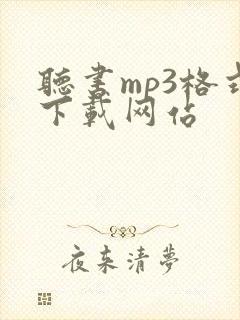 聽書mp3格式
下載网站
夜来清夢